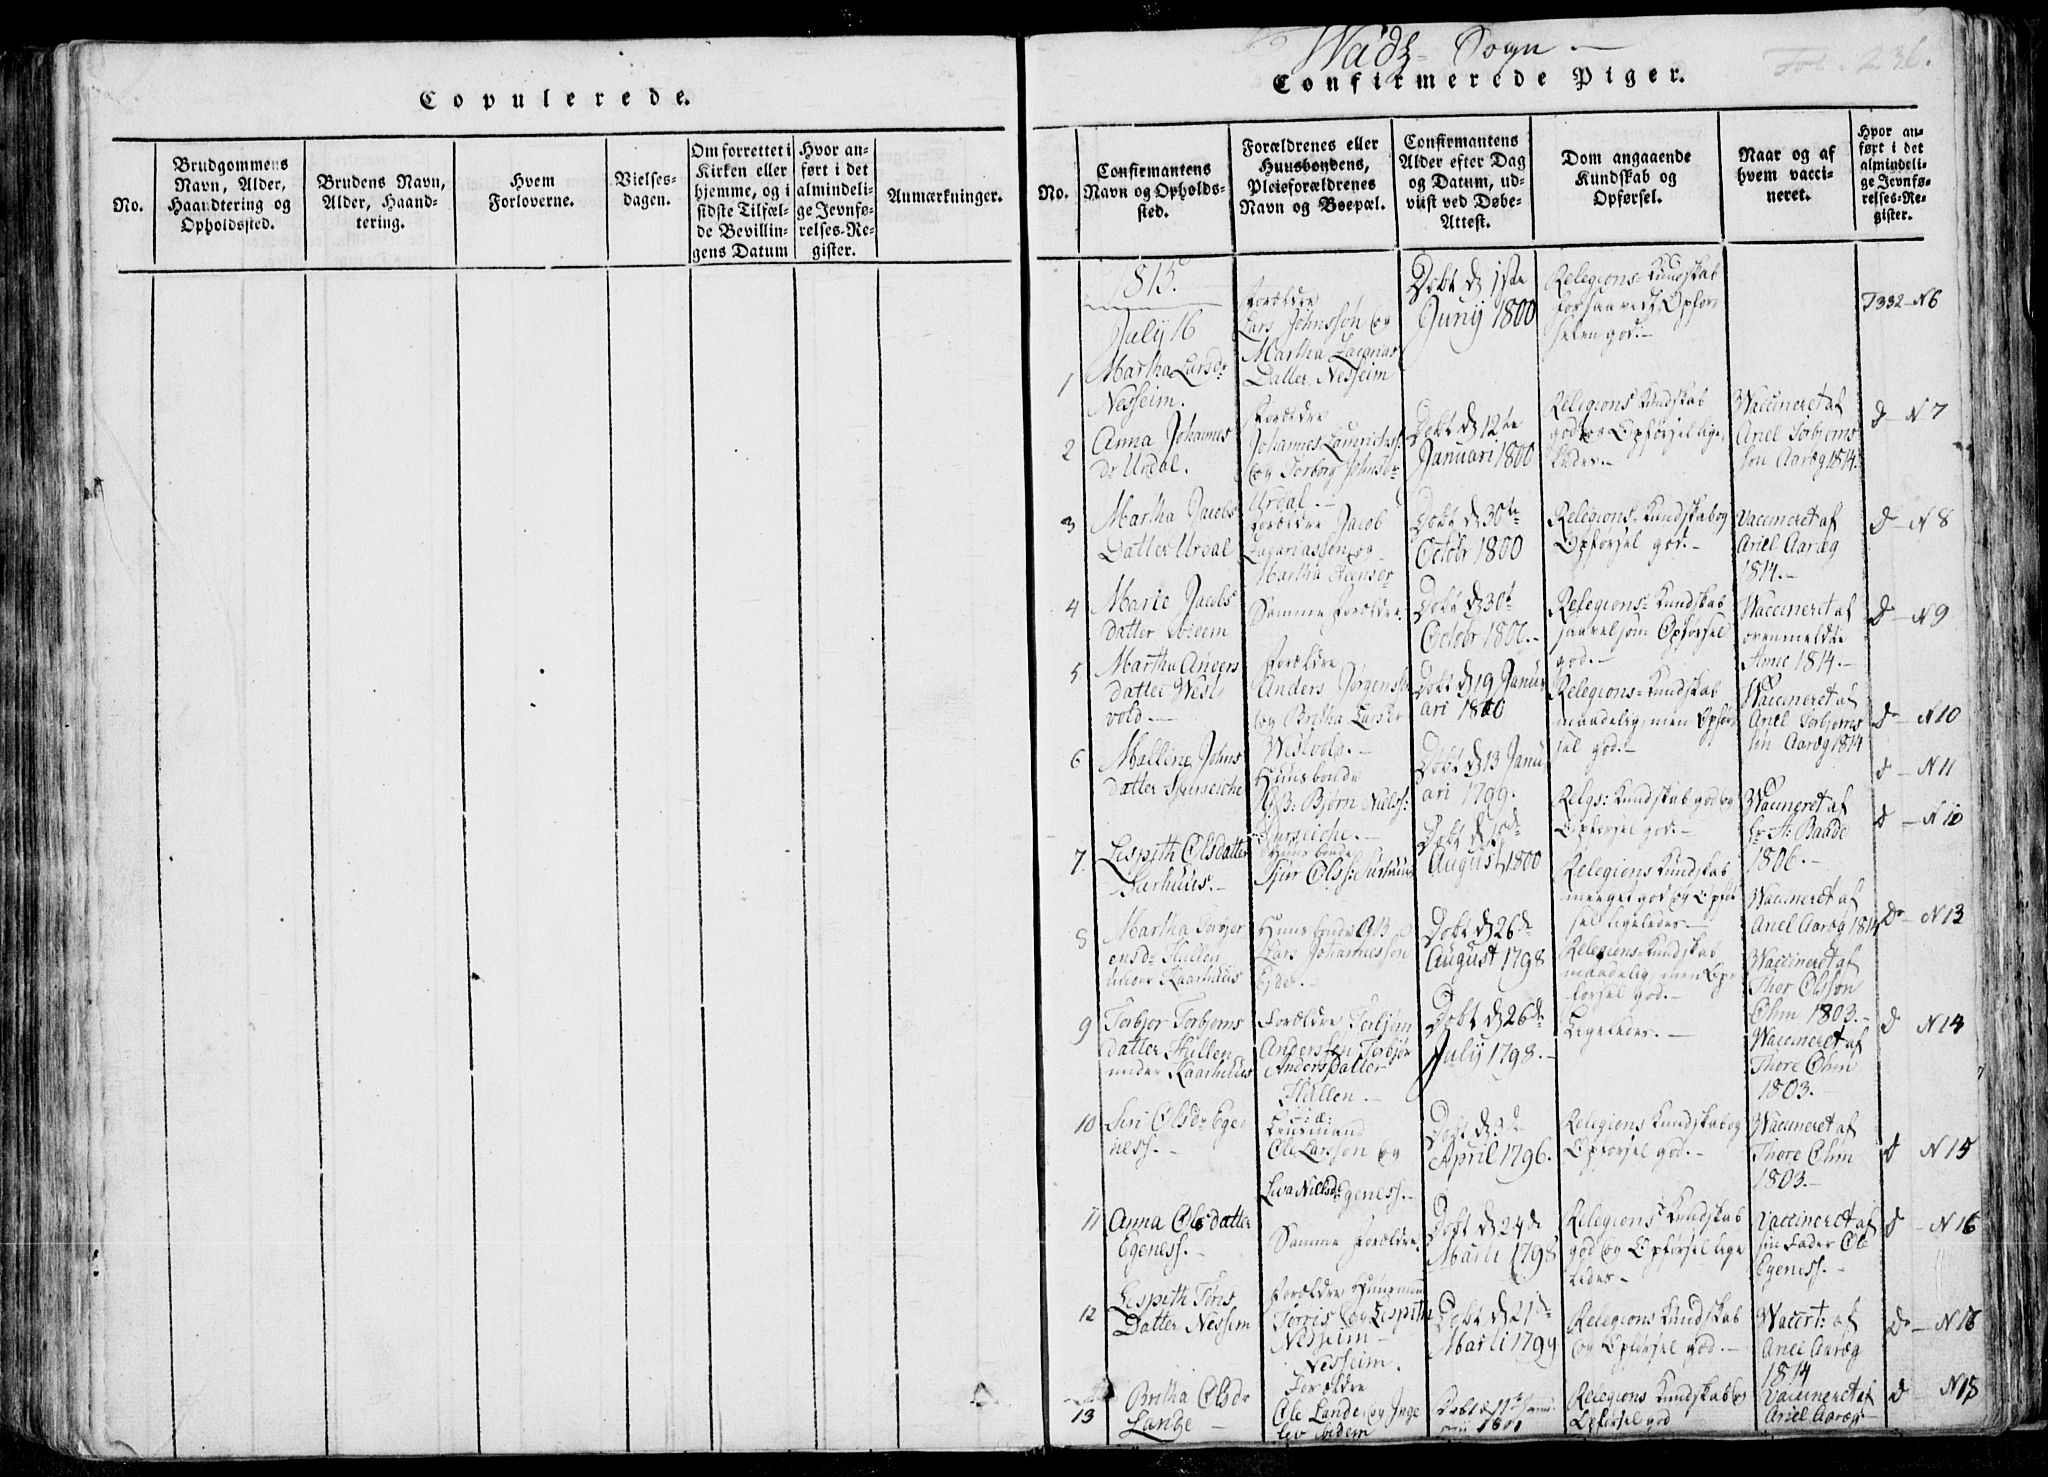 Copulerede.
No.
Brudgommens
Navn, Alder,
Haandtering og
Opholdssted.
Brudens Navn,
Alder, Haand-
tering.
Hvem
Forloverne.
Vielses-
dagen.
Om forrettet i
Kirken eller
hjemme, og i
sidste Tilfæl-
de Bevillin-
gens Datum
Hvor an-
ført i det
almindeli-
ge Jevnfø-
relses-Re-
gister.
Anmærkninger.
Sogn
Fol. 236.
Confirmerede Piger.
No.
Confirmantens
Navn og Opholds-
sted.
Forældrenes eller
Huusbondens,
Pleieforældrenes
Navn og Boepæl.
Confirmantens
Alder efter Dag
og Datum, ud-
viist ved Døbe-
Attest.
Dom angaaende
Kundskab og
Opførsel.
Naar og af
hvem vacci-
neret.
Hvor an-
ført i det
almindeli-
ge Jevnfø-
relses-Re-
gister.
1815.
July 16
1
Martha Larsdr
Nesheim.
Forældre
Lars Johnsøn og
Martha Zacarias
Datter Nesheim
Døbt d 1ste
Junij 1800
Relegions-Kundskab
Opfør
selen god.-
T332-N6
2
Anna Johannes
dr Urdal.
Forældre
Johannes
og Torborg Johnsdr
Urdal.-
Døbt d 12te
Januari 1800
Relegions Kundskab
god og Opførsel lige
ledes.-
Waccineret af
Ariel Torbjorns
søn Aaræg 1814.
d - N 7
3
Martha Jacobs
Datter Urdal
Forældre Jacob
Zacariassøn og
Martha
Døbt d 30te
Octobr 1800
Relegions-Kundskab og
Opførsel god.-
Vaccineret af
Ariel Aaræg
1814.-
d - N 8
4
Marie Jacobs
datter
Samme Forældre.
Døbt d 30t
Octobr 1800.-
Relegions-Kundskab
saavelsom Opførsel
god.-
Waccineret af
ovenmeldte
Anno 1814.-
d - N9
5
Martha Anders
datter West
vold.-
Forældre
Anders Jørgensøn
og Britha Larsdr
Westvold.-
Døbt d 19 Janu
ari 1800
Relegions-Kundskab
maadelig, men Opfør
sel god.-
Waccineret af
Ariel Torbjorns
søn Aaræg 1814
d - N10
6
Mallene Johns
datter
Huusbonde
G:B: Bjørn Niels:
Døbt d 13 Janu
ari 1799.
Relgs: Kundskab god og
Opførsel god.-
Waccineret af
Baade
1806.-
d - N 11
7
Lispith Olsdatter
Aarhuus.-
Huusbonde
Sjur Olss:
Døbt d
August 1800
Relegions Kundskab
meeget god og Opfør
sel ligeledes.-
Waccineret af
Ariel Aaræg 1814
d - N 10
8
Martha Torbjor
ensdr Hullen
under Kaarhuus
Huusbonde G.B.
Lars Johannessøn
Eide.-
Døbt d 26de
August 1798
Relegions-Kundskab
maadelig, men Op
førsel god.-
Waccineret af
Thor Olssøn
Ohm 1803.-
Do - N 13
9
Torbjor Torbjorns
datter Hullen
under Kaarhuus
Forældre Torbjøn
Andersen Torbjør
Andersdatter
Hullen.-
Døbt d 26de
July 1798.-
Ligeledes.-
Waccineret af
Thore Ohm
1803.-
d N14
10
Siri Olsdr Ege
ness.-
Ole Larssøn og
Siva Nielsdr Egeness.-
Døbt d 3de
April 1796.
Relegions Kundskab og
Opførsel god.-
Waccineret af
Thore Ohm
1803.-
d N15
11
Anna Olsdatter
Egeness.-
Samme Forældre.
Døbt d 24de
Marti 1798
Relegions Kundskab
god og Opførsel lige
ledes-
Vaccineret af
sin Fader Ole
Egeness.-
d - N 16
12
Lispith Tøris
Datter Nessem
Forældre
Torris og Lispith
Nesheim-
Nesheim.
Døbt d 21de
Marti 1799
Relegions Kundskab
og Opførsel god.-
Waccrt: af
Ariel Aaræg
1814
Do - N 16
13
Britha Olsdr
Lande
Forældre
Ole Lande, og Inge
ibidem
Døbt d 11te
1801
Relegions Kundskab og
Opførsel god
Vaccineret af
Ariel Aaræg
d N15